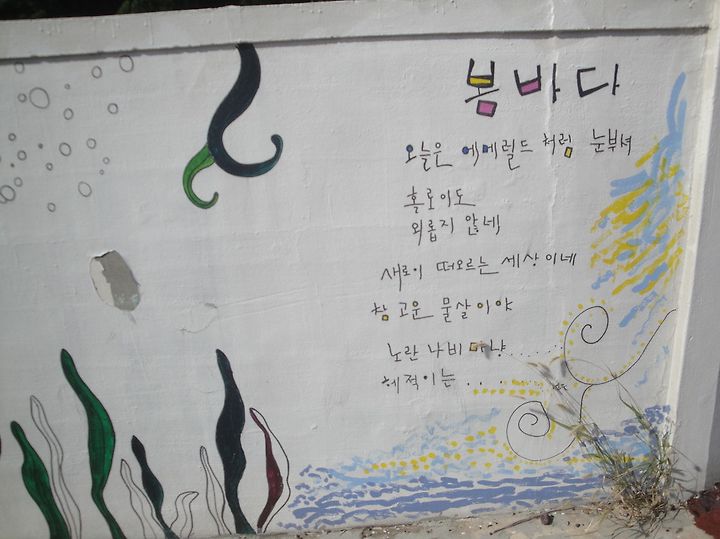 봄바다
오늘은 에메럴드 처럼 눈부셔
홀로이도
외롭지 않네
새로이 떠오르는 세상이네
참 고운 물살이야
노란 나비 마냥
헤적이는 . . . .